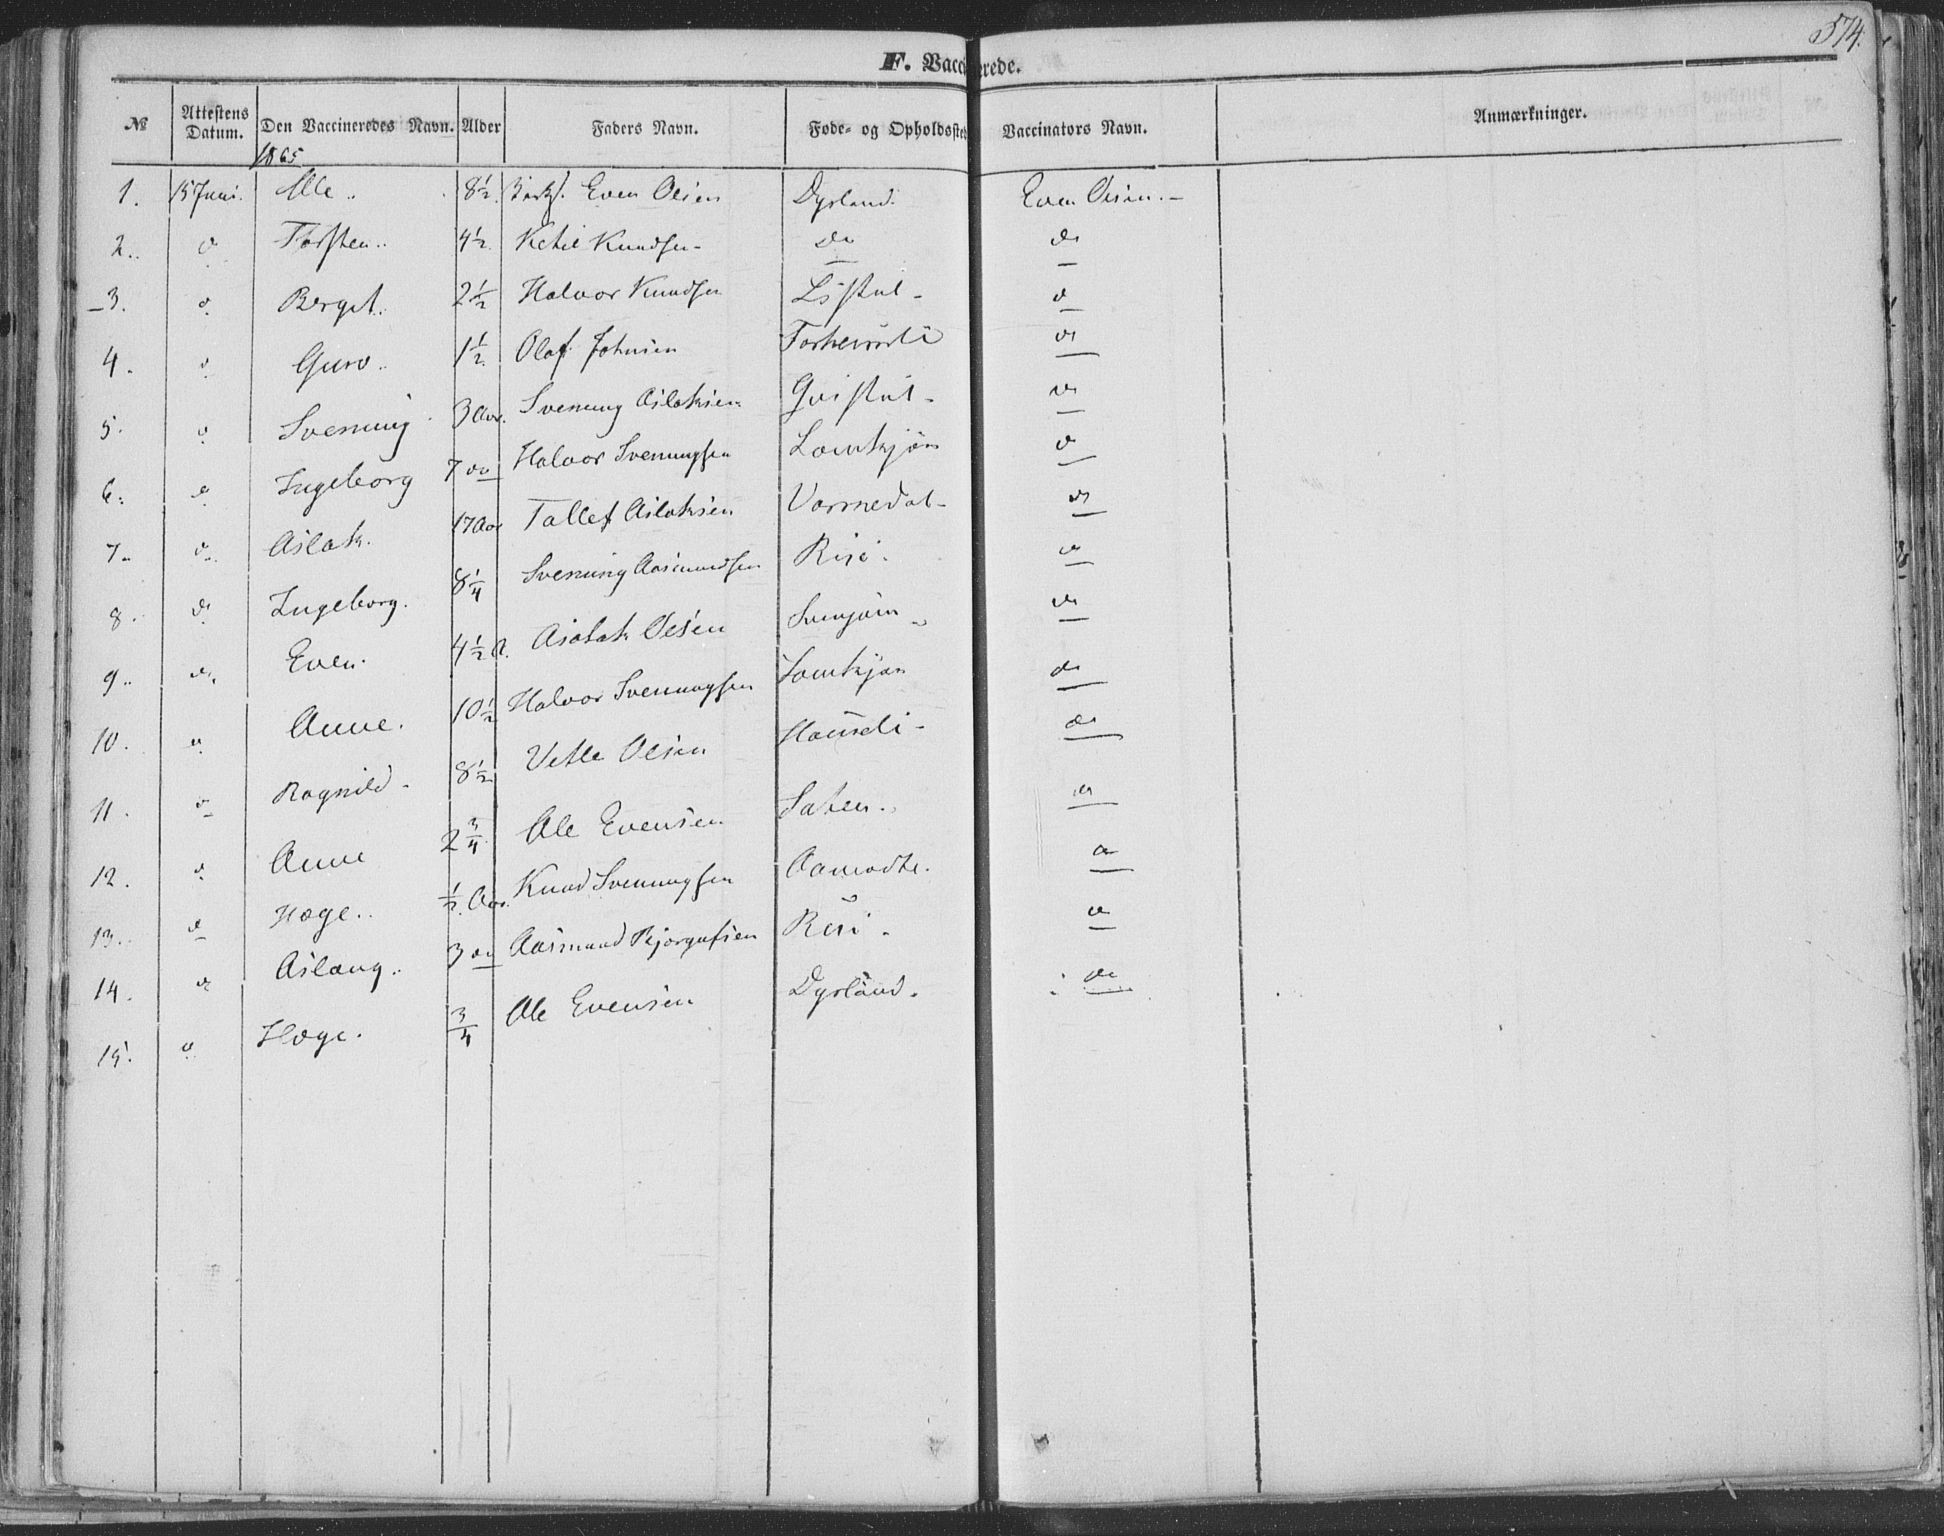 574.
F. Vaccinerede.
№ Attestens Datum. Den Vaccineredes Navn. Alder Faders Navn. Føde- og Opholdssted Vaccinators Navn. Anmærkninger.
1865
1. 15 Juni. Ole 8½ Even Olsen Dyrland. Even Olsen.
2. d Torsten 4½ Ketil Knudsen do do
3. d Berget 2½ Halvor Knudsen do
4. d Guro 1½ Olaf Johnsen do
5. d Svenung 3 Aar. Svenung Aslaksen Qvistul do
6. d Ingeborg 7 do Halvor Svenungsen Lomtjøn do
7. d Aslak. 17 Aar Tallef Aslaksen Varmedal do
8. d Ingeborg. 8¼ Svenung Aasmundsen Risi do
9. d Even. 4½ A. Aslak Olsen do
10. d Anne. 10½ Halvor Svenungsen Lomtjøn do
11. d Ragnild 8½ Vetle Olsen do
12. d Anne 2¾ Ole Evensen do
13. d Hæge ½ Aar. Knud Svenungsen Aamodt. do
14. d Aslaug 3 do Aasmund Bjorgufsen Risi do
15. d Hæge. ¾ Ole Evensen Dyrland. do